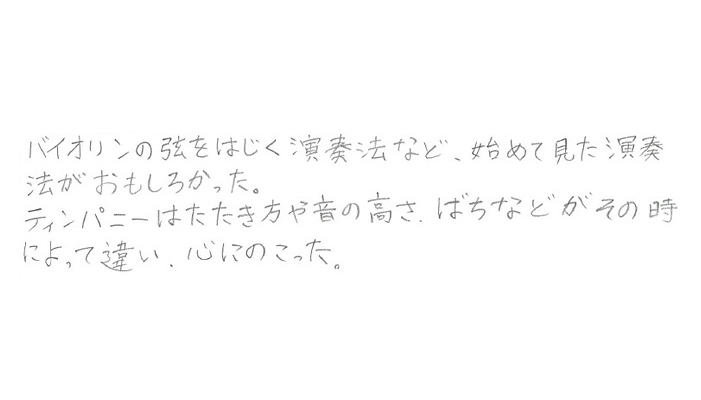 バイオリンの弦をはじく演奏法など、始めて見た演奏
法がおもしろかった。
ティンパニーはたたき方や音の高さ、ばちなどがその時
によって違い、心にのこった。